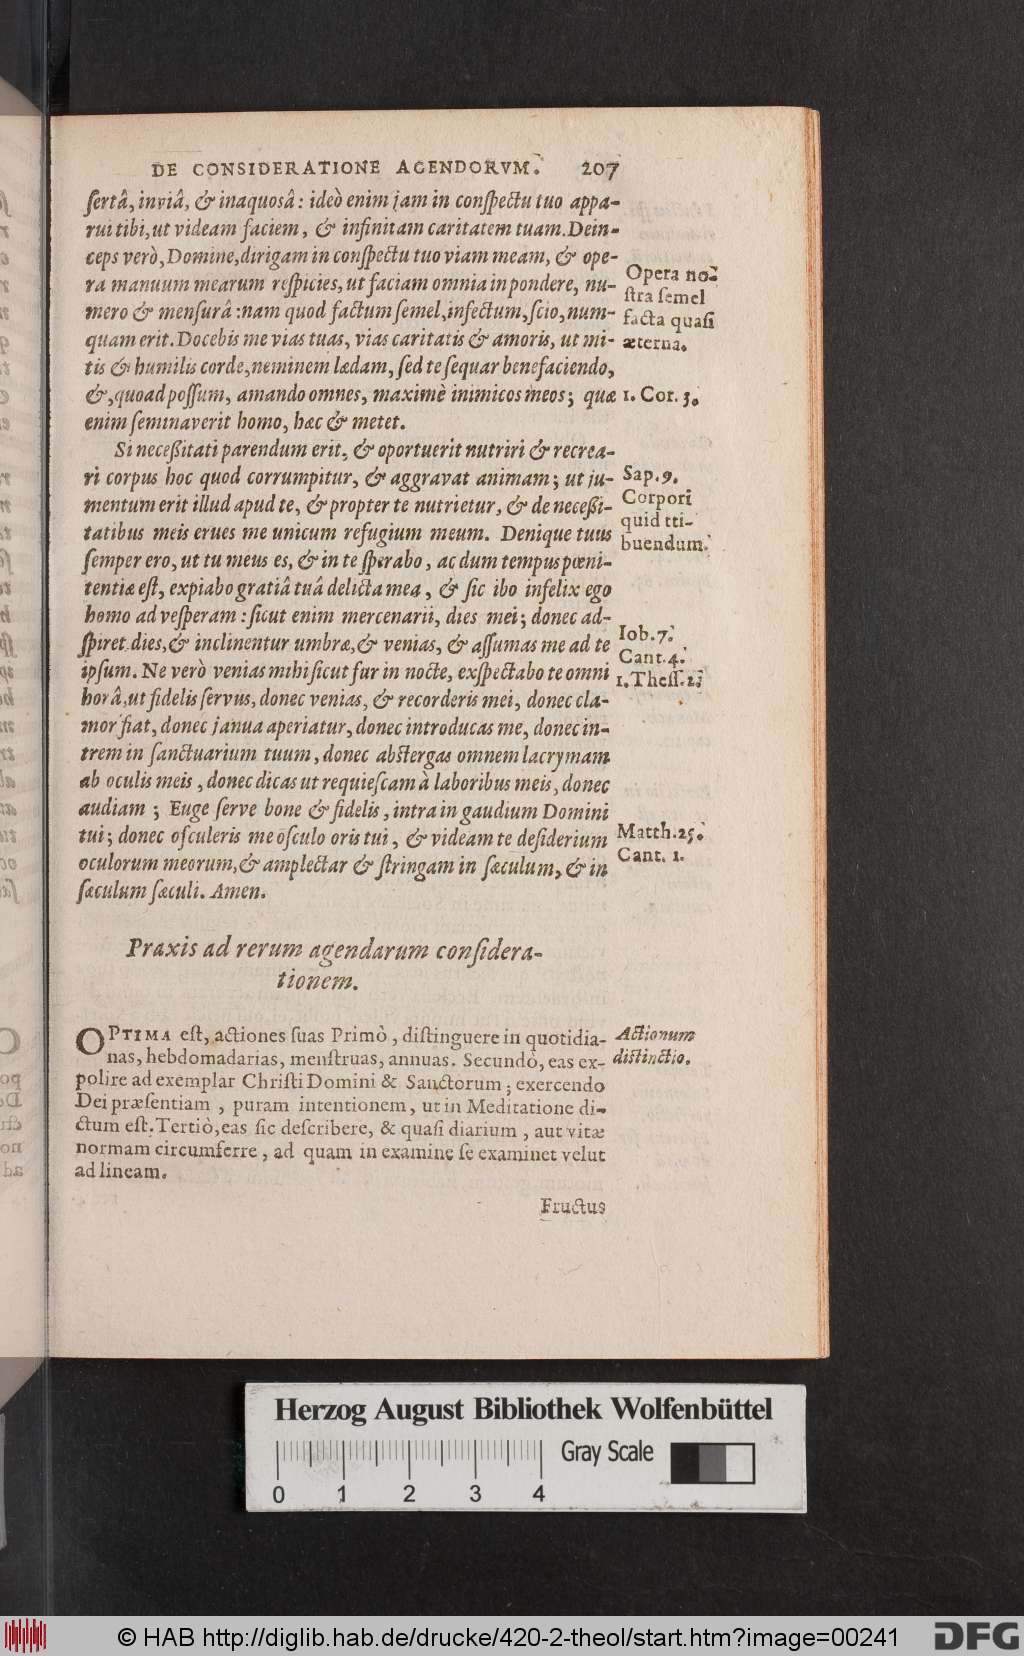 DE CONSIDERATIONE AGENDORVM. 207
ſertâ, inviâ, & inaquosâ: ideò enim jam in conſpectu tuo appa-
rui tibi, ut videam faciem, & infinitam caritatem tuam. Dein-
ceps verò, Domine, dirigam in conſpectu tuo viam meam, & ope-
ra manuum mearum reſpicies, ut faciam omnia in pondere, nu-
mero & menſurâ: nam quod factum ſemel, infectum, ſcio, num-
quam erit. Docebis me vias tuas, vias caritatis & amoris, ut mi-
tis & humilis corde, neminem lædam, ſed te ſequar benefaciendo,
&, quoad poſſum, amando omnes, maximè inimicos meos; quæ
enim ſeminaverit homo, hæc & metet.
Opera no-
ſtra ſemel
facta quaſi
æterna.
1. Cor. 3.
Si neceßitati parendum erit, & oportuerit nutriri & recrea-
ri corpus hoc quod corrumpitur, & aggravat animam; ut ju-
mentum erit illud apud te, & propter te nutrietur, & de neceßi-
tatibus meis erues me unicum refugium meum. Denique tuus
ſemper ero, ut tu meus es, & in te ſperabo, ac dum tempus pœni-
tentiæ eſt, expiabo gratiâ tuâ delicta mea, & ſic ibo infelix ego
homo ad veſperam: ſicut enim mercenarii, dies mei; donec ad-
ſpiret dies, & inclinentur umbræ, & venias, & aſſumas me ad te
ipſum. Ne verò venias mihi ſicut fur in nocte, exſpectabo te omni
horâ, ut fidelis ſervus, donec venias, & recorderis mei, donec cla-
mor fiat, donec janua aperiatur, donec introducas me, donec in-
trem in ſanctuarium tuum, donec abſtergas omnem lacrymam
ab oculis meis, donec dicas ut requieſcam à laboribus meis, donec
audiam; Euge ſerve bone & fidelis, intra in gaudium Domini
tui; donec oſculeris me oſculo oris tui, & videam te deſiderium
oculorum meorum, & amplectar & ſtringam in ſæculum, & in
ſæculum ſæculi. Amen.
Sap. 9.
Corpori
quid tti-
buendum.
Iob. 7.
Cant. 4.
1. Theſſ. 2.
Matth. 25.
Cant. 1.
Praxis ad rerum agendarum conſidera-
tionem.
OPTIMA eſt, actiones ſuas Primò, diſtinguere in quotidia-
nas, hebdomadarias, menſtruas, annuas. Secundò, eas ex-
polire ad exemplar Chriſti Domini & Sanctorum; exercendo
Dei præſentiam, puram intentionem, ut in Meditatione di-
ctum eſt. Tertiò, eas ſic deſcribere, & quaſi diarium, aut vitæ
normam circumferre, ad quam in examine ſe examinet velut
ad lineam.
Actionum
diſtinctio.
Fructus
Herzog August Bibliothek Wolfenbüttel
Gray Scale
0 1 2 3 4
© HAB http://diglib.hab.de/drucke/420-2-theol/start.htm?image=00241
DFG